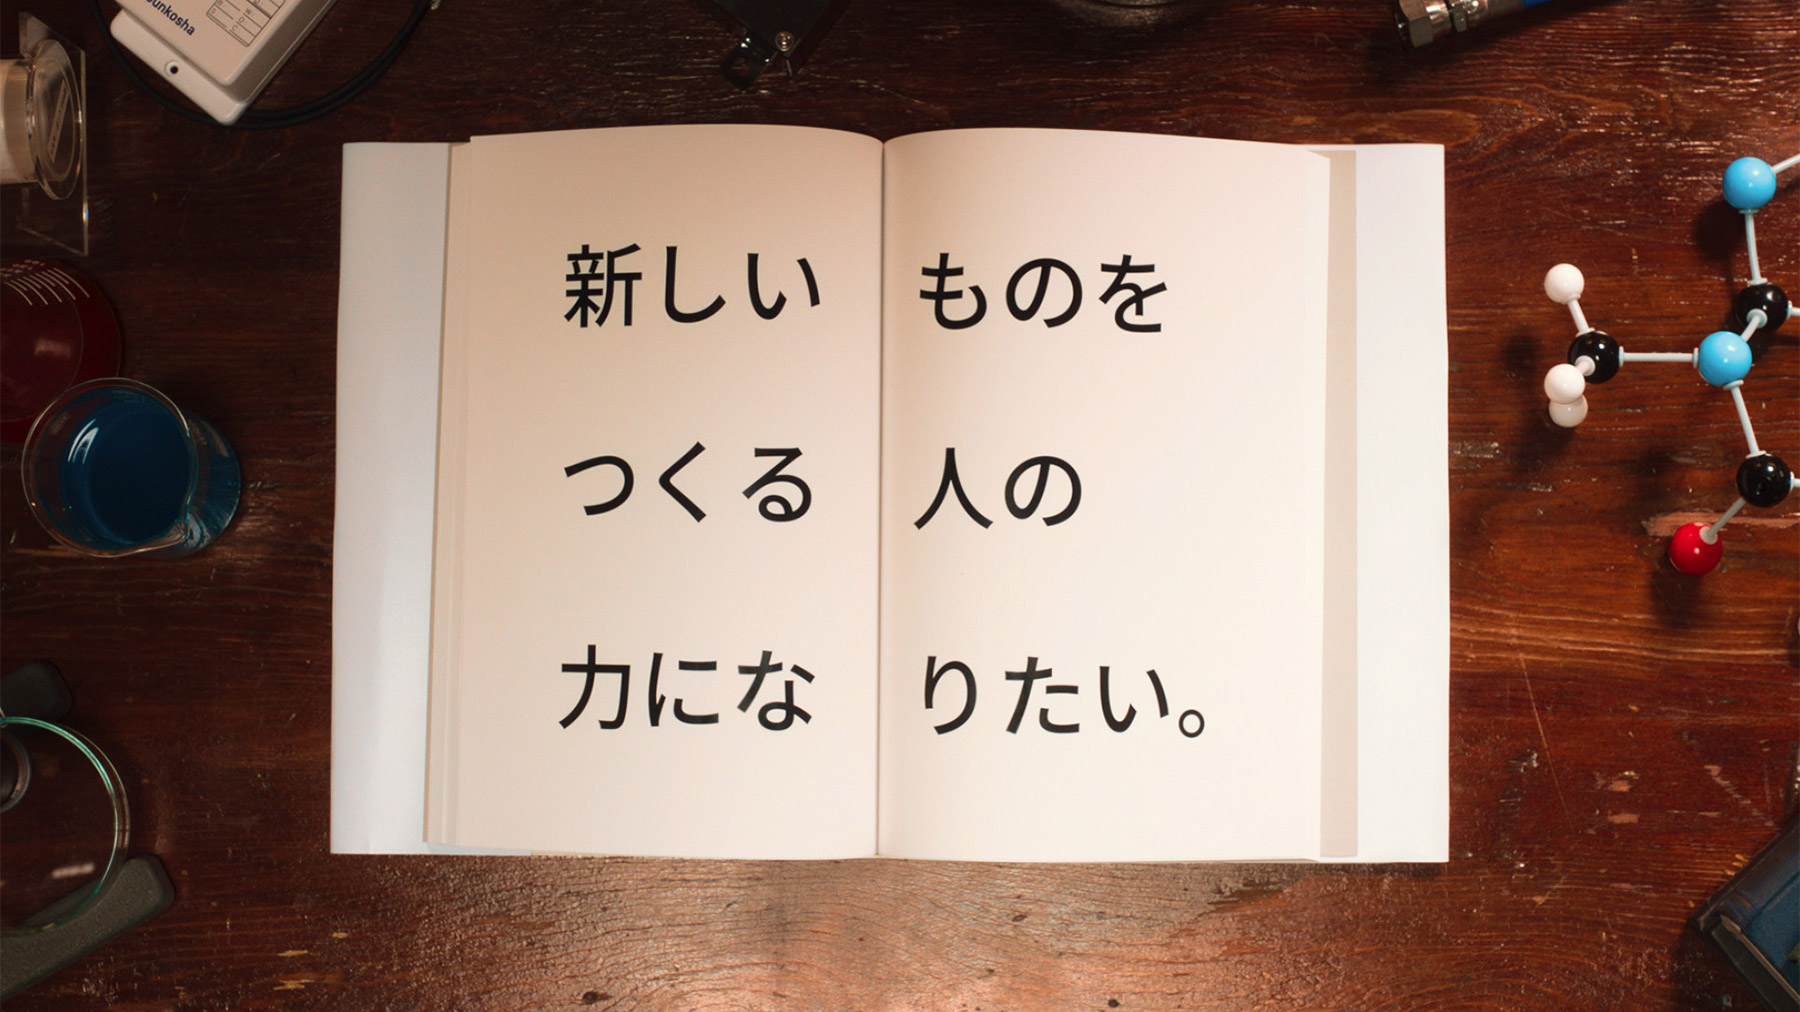 unkosha
新しいものを
つくる人の
力になりたい。